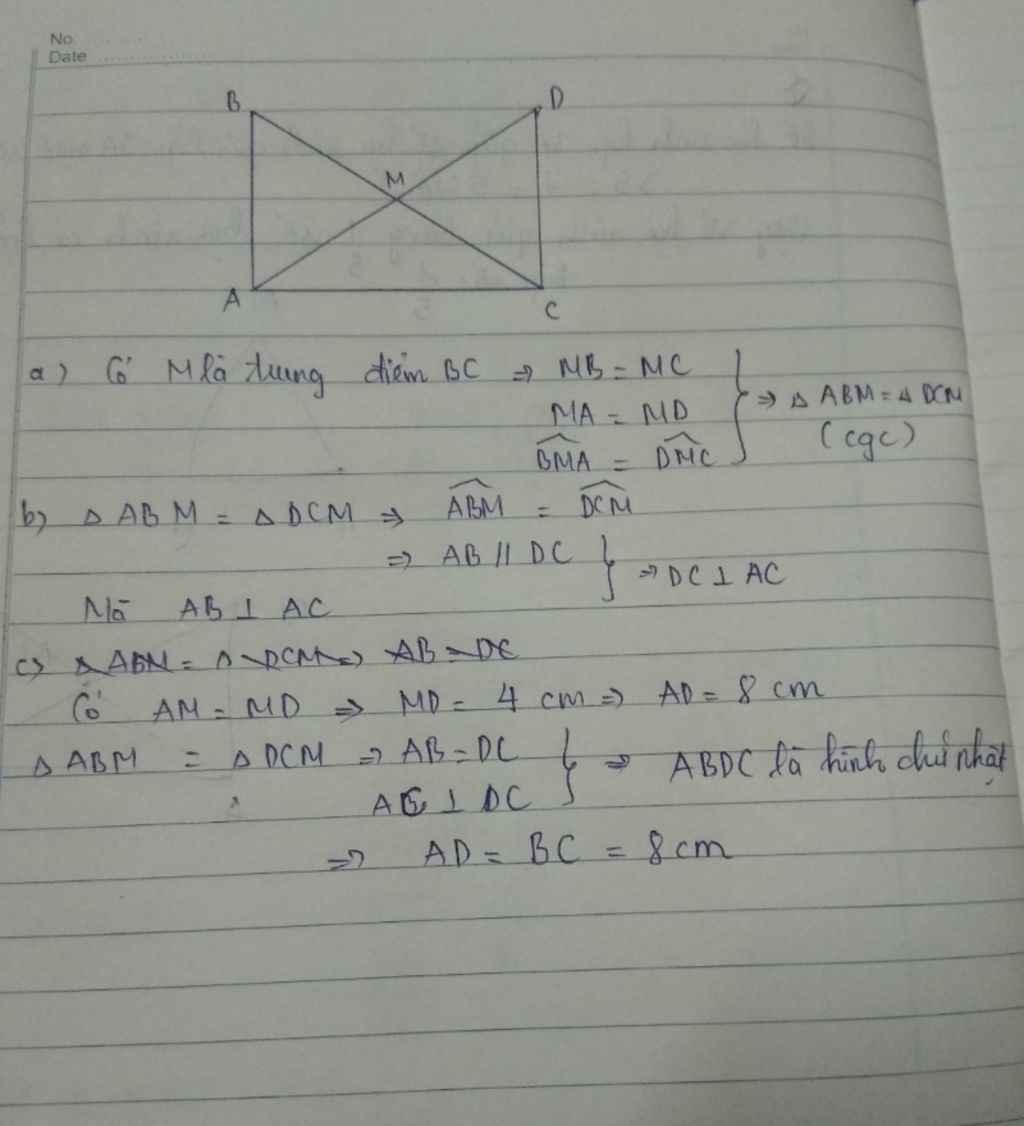 No.
Date
B D
M
A C
a) Có M là trung điểm BC ⇒ MB = MC
MA = MD
BMA = DMC
} ⇒ Δ ABM = Δ DCM
(cgc)
b) Δ ABM = Δ DCM ⇒ ABM = DCM
⇒ AB // DC } ⇒ DC ⊥ AC
Mà AB ⊥ AC
c) Δ ABM = Δ DCM ⇒ AB = DC
Có AM = MD ⇒ MD = 4 cm ⇒ AD = 8 cm
Δ ABM = Δ DCM ⇒ AB = DC } ⇒ ABDC là hình chữ nhật
AC ⊥ DC
⇒ AD = BC = 8 cm